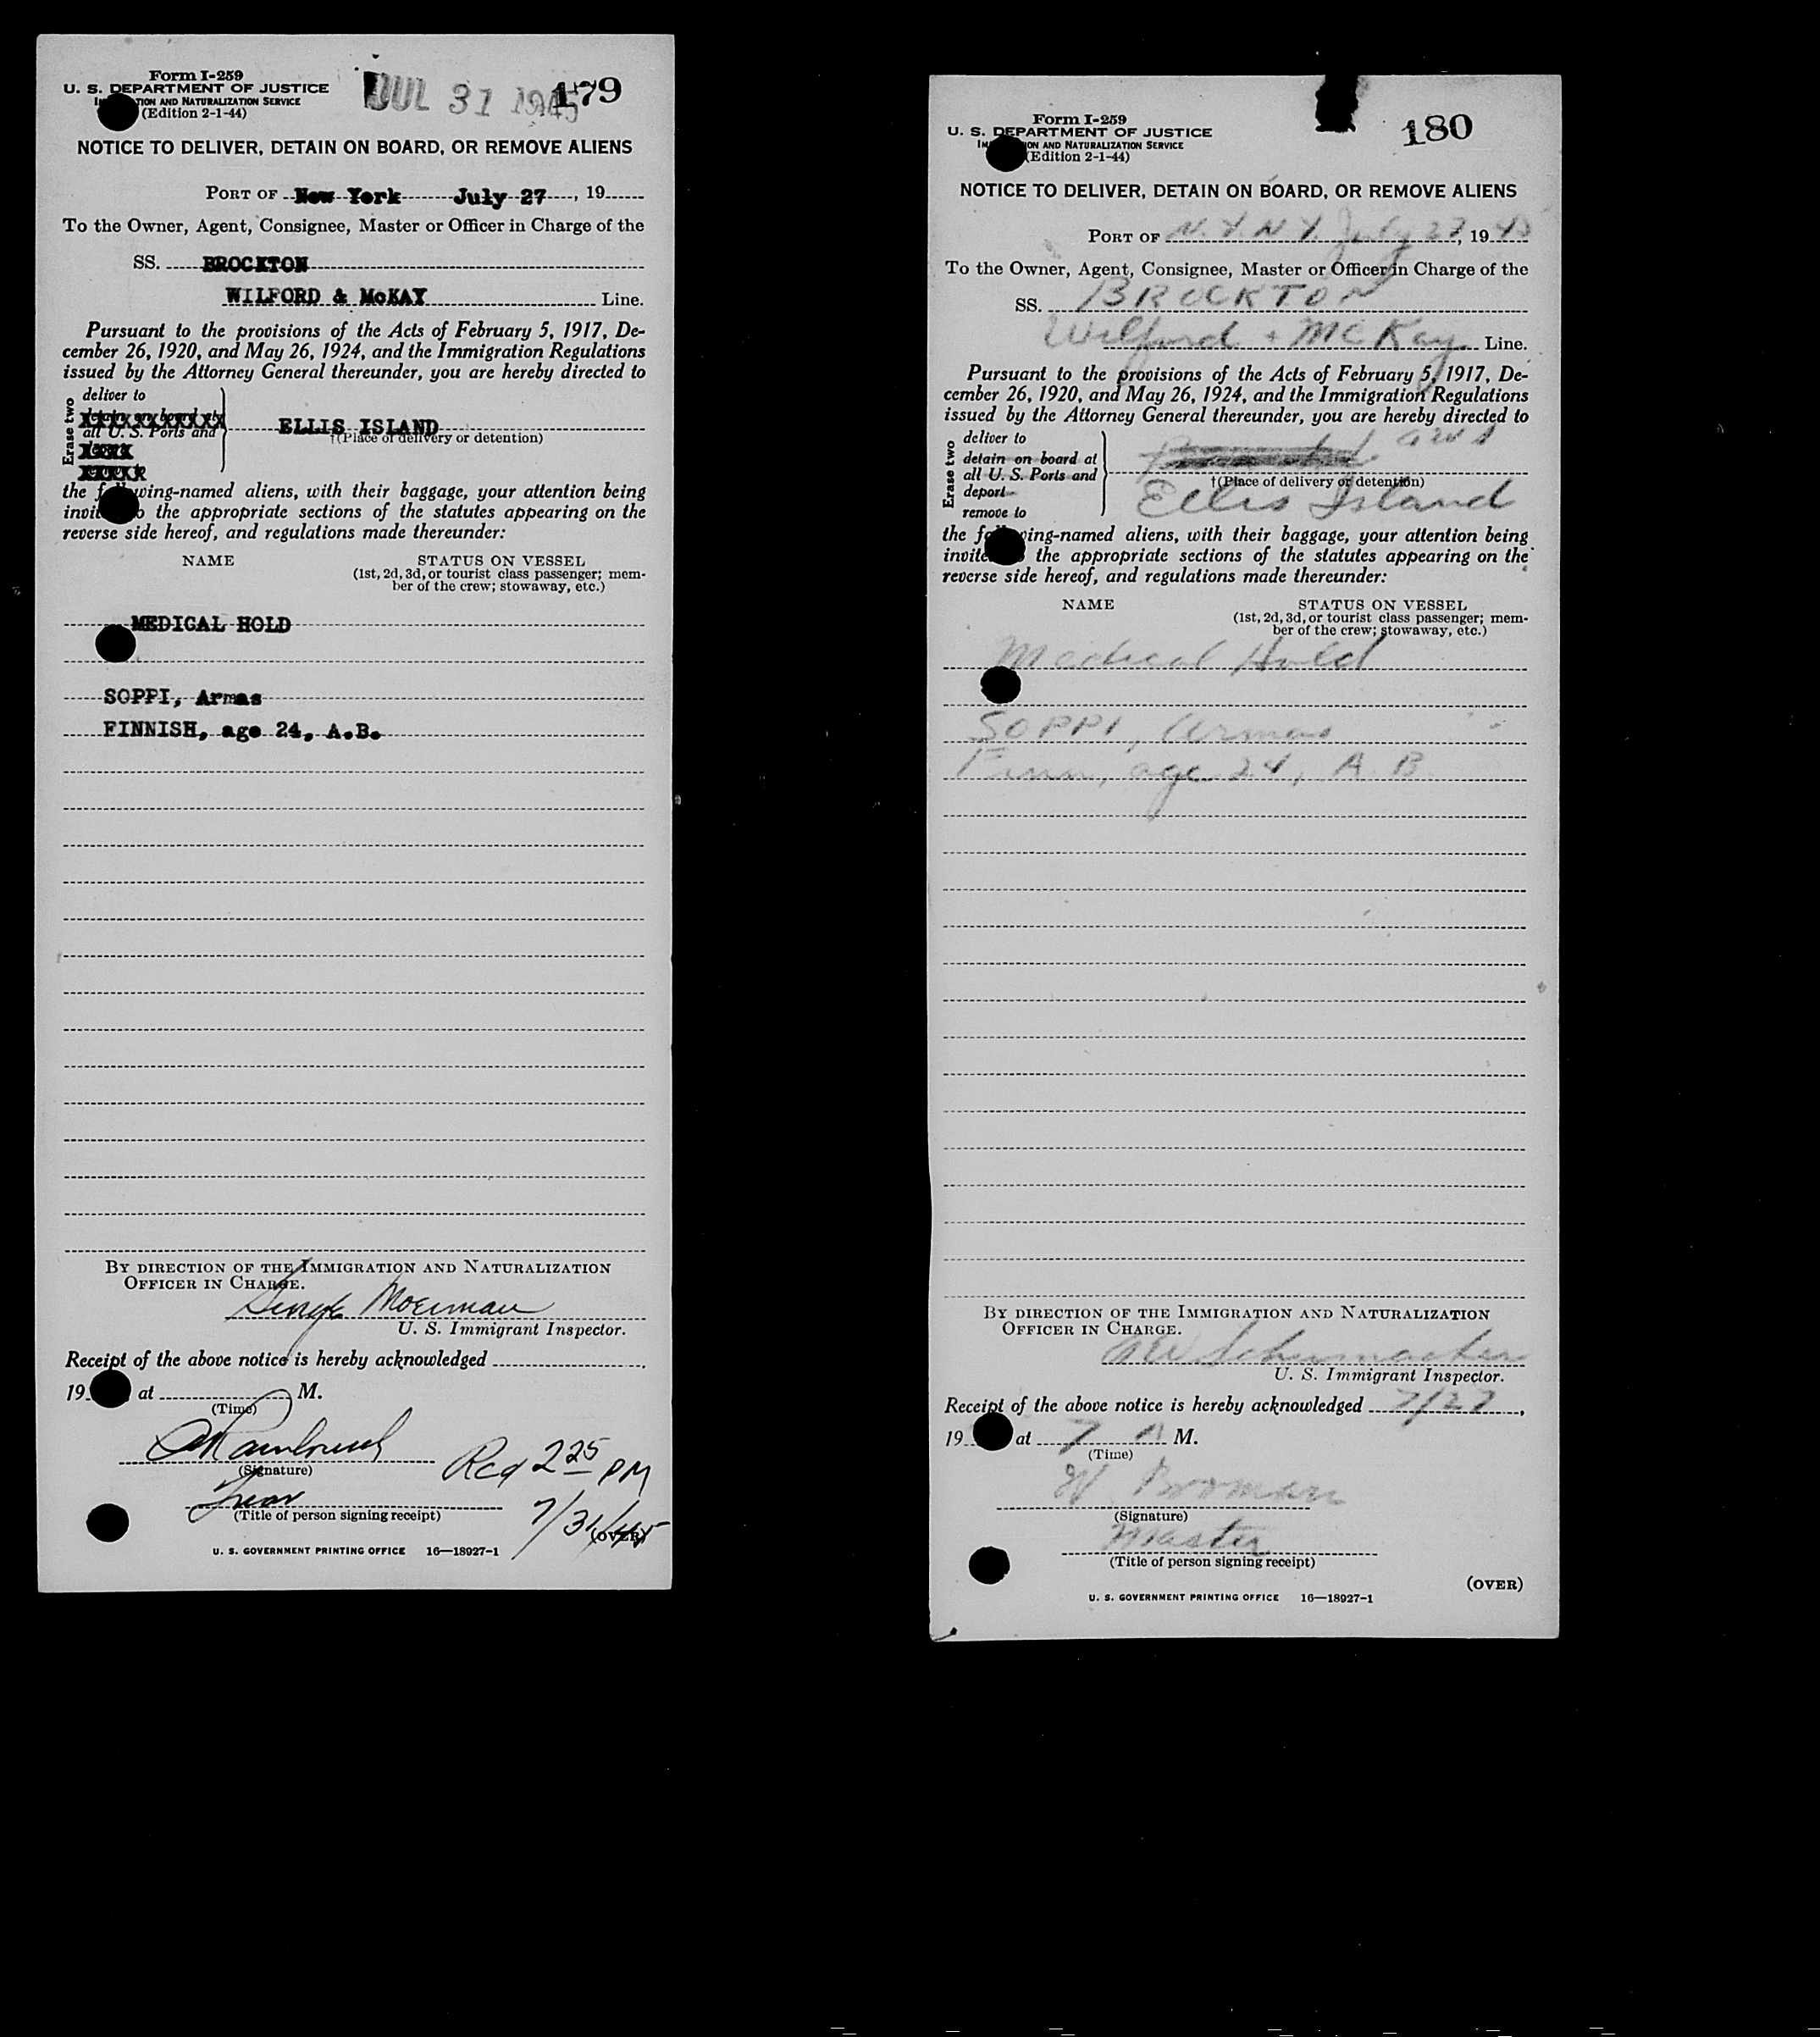 Form I-259
U. S. DEPARTMENT OF JUSTICE
TION AND NATURALIZATION SERVICE
(Edition 2-1-44)
JUL 31 1945
179
NOTICE TO DELIVER, DETAIN ON BOARD, OR REMOVE ALIENS
PORT OF New York July 27, 19
To the Owner, Agent, Consignee, Master or Officer in Charge of the
SS. BROCKTON
WILFORD & McKAY Line.
Pursuant to the provisions of the Acts of February 5, 1917, De-
cember 26, 1920, and May 26, 1924, and the Immigration Regulations
issued by the Attorney General thereunder, you are hereby directed to
Erase two
deliver to
detain on board at
all U. S. Ports and
ELLIS ISLAND
†(Place of delivery or detention)
the following-named aliens, with their baggage, your attention being
the appropriate sections of the statutes appearing on the
reverse side hereof, and regulations made thereunder:
NAME STATUS ON VESSEL
(1st, 2d, 3d, or tourist class passenger; mem-
ber of the crew; stowaway, etc.)
MEDICAL HOLD
SOPPI, Armas
FINNISH, age 24, A.B.
BY DIRECTION OF THE IMMIGRATION AND NATURALIZATION
OFFICER IN CHARGE.
Moerman
U. S. Immigrant Inspector.
Receipt of the above notice is hereby acknowledged
19 at M.
(Time)
(Signature)
Rcd 2 25 PM
(Title of person signing receipt)
7/31/45
(OVER)
U. S. GOVERNMENT PRINTING OFFICE 16—18927-1
Form I-259
U. S. DEPARTMENT OF JUSTICE
ION AND NATURALIZATION SERVICE
(Edition 2-1-44)
180
NOTICE TO DELIVER, DETAIN ON BOARD, OR REMOVE ALIENS
PORT OF N. Y. N. Y. July 27, 1945
To the Owner, Agent, Consignee, Master or Officer in Charge of the
SS. BROCKTON
Wilford + McKay Line.
Pursuant to the provisions of the Acts of February 5, 1917, De-
cember 26, 1920, and May 26, 1924, and the Immigration Regulations
issued by the Attorney General thereunder, you are hereby directed to
Erase two
deliver to
detain on board at
all U. S. Ports and
deport
remove to
aws
†(Place of delivery or detention)
Ellis Island
the following-named aliens, with their baggage, your attention being
the appropriate sections of the statutes appearing on the
reverse side hereof, and regulations made thereunder:
NAME STATUS ON VESSEL
(1st, 2d, 3d, or tourist class passenger; mem-
ber of the crew; stowaway, etc.)
Medical Hold
SOPPI, Armas
Finn, age 24, A. B.
BY DIRECTION OF THE IMMIGRATION AND NATURALIZATION
OFFICER IN CHARGE.
AW Schumacher
U. S. Immigrant Inspector.
Receipt of the above notice is hereby acknowledged 7/27,
19 at 7 A M.
(Time)
W. Broman
(Signature)
Master
(Title of person signing receipt)
(OVER)
U. S. GOVERNMENT PRINTING OFFICE 16—18927-1